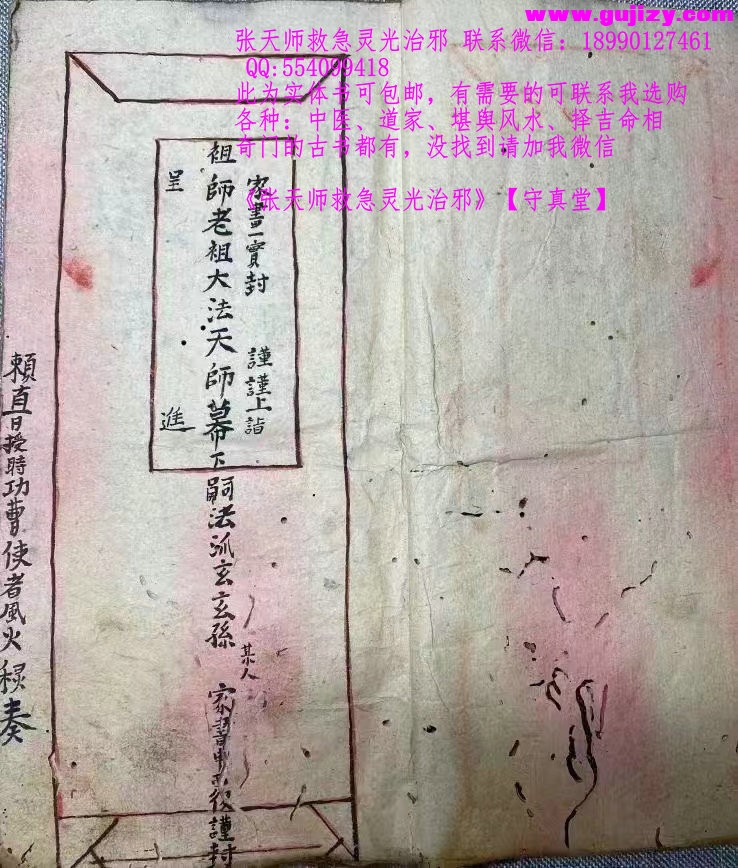 www.gujizy.com
张天师救急灵光治邪 联系微信: 18990127461
QQ:554099418
此为实体书可包邮，有需要的可联系我选购
各种：中医、道家、堪舆风水、择吉命相
奇门的古书都有，没找到请加我微信
《张天师救急灵光治邪》【守真堂】
家書一實封 謹謹上詣
祖師老祖大法天師幕下嗣法派玄玄孫 某人 家書申 謹封
呈 進
賴直日授時功曹使者風火 奏